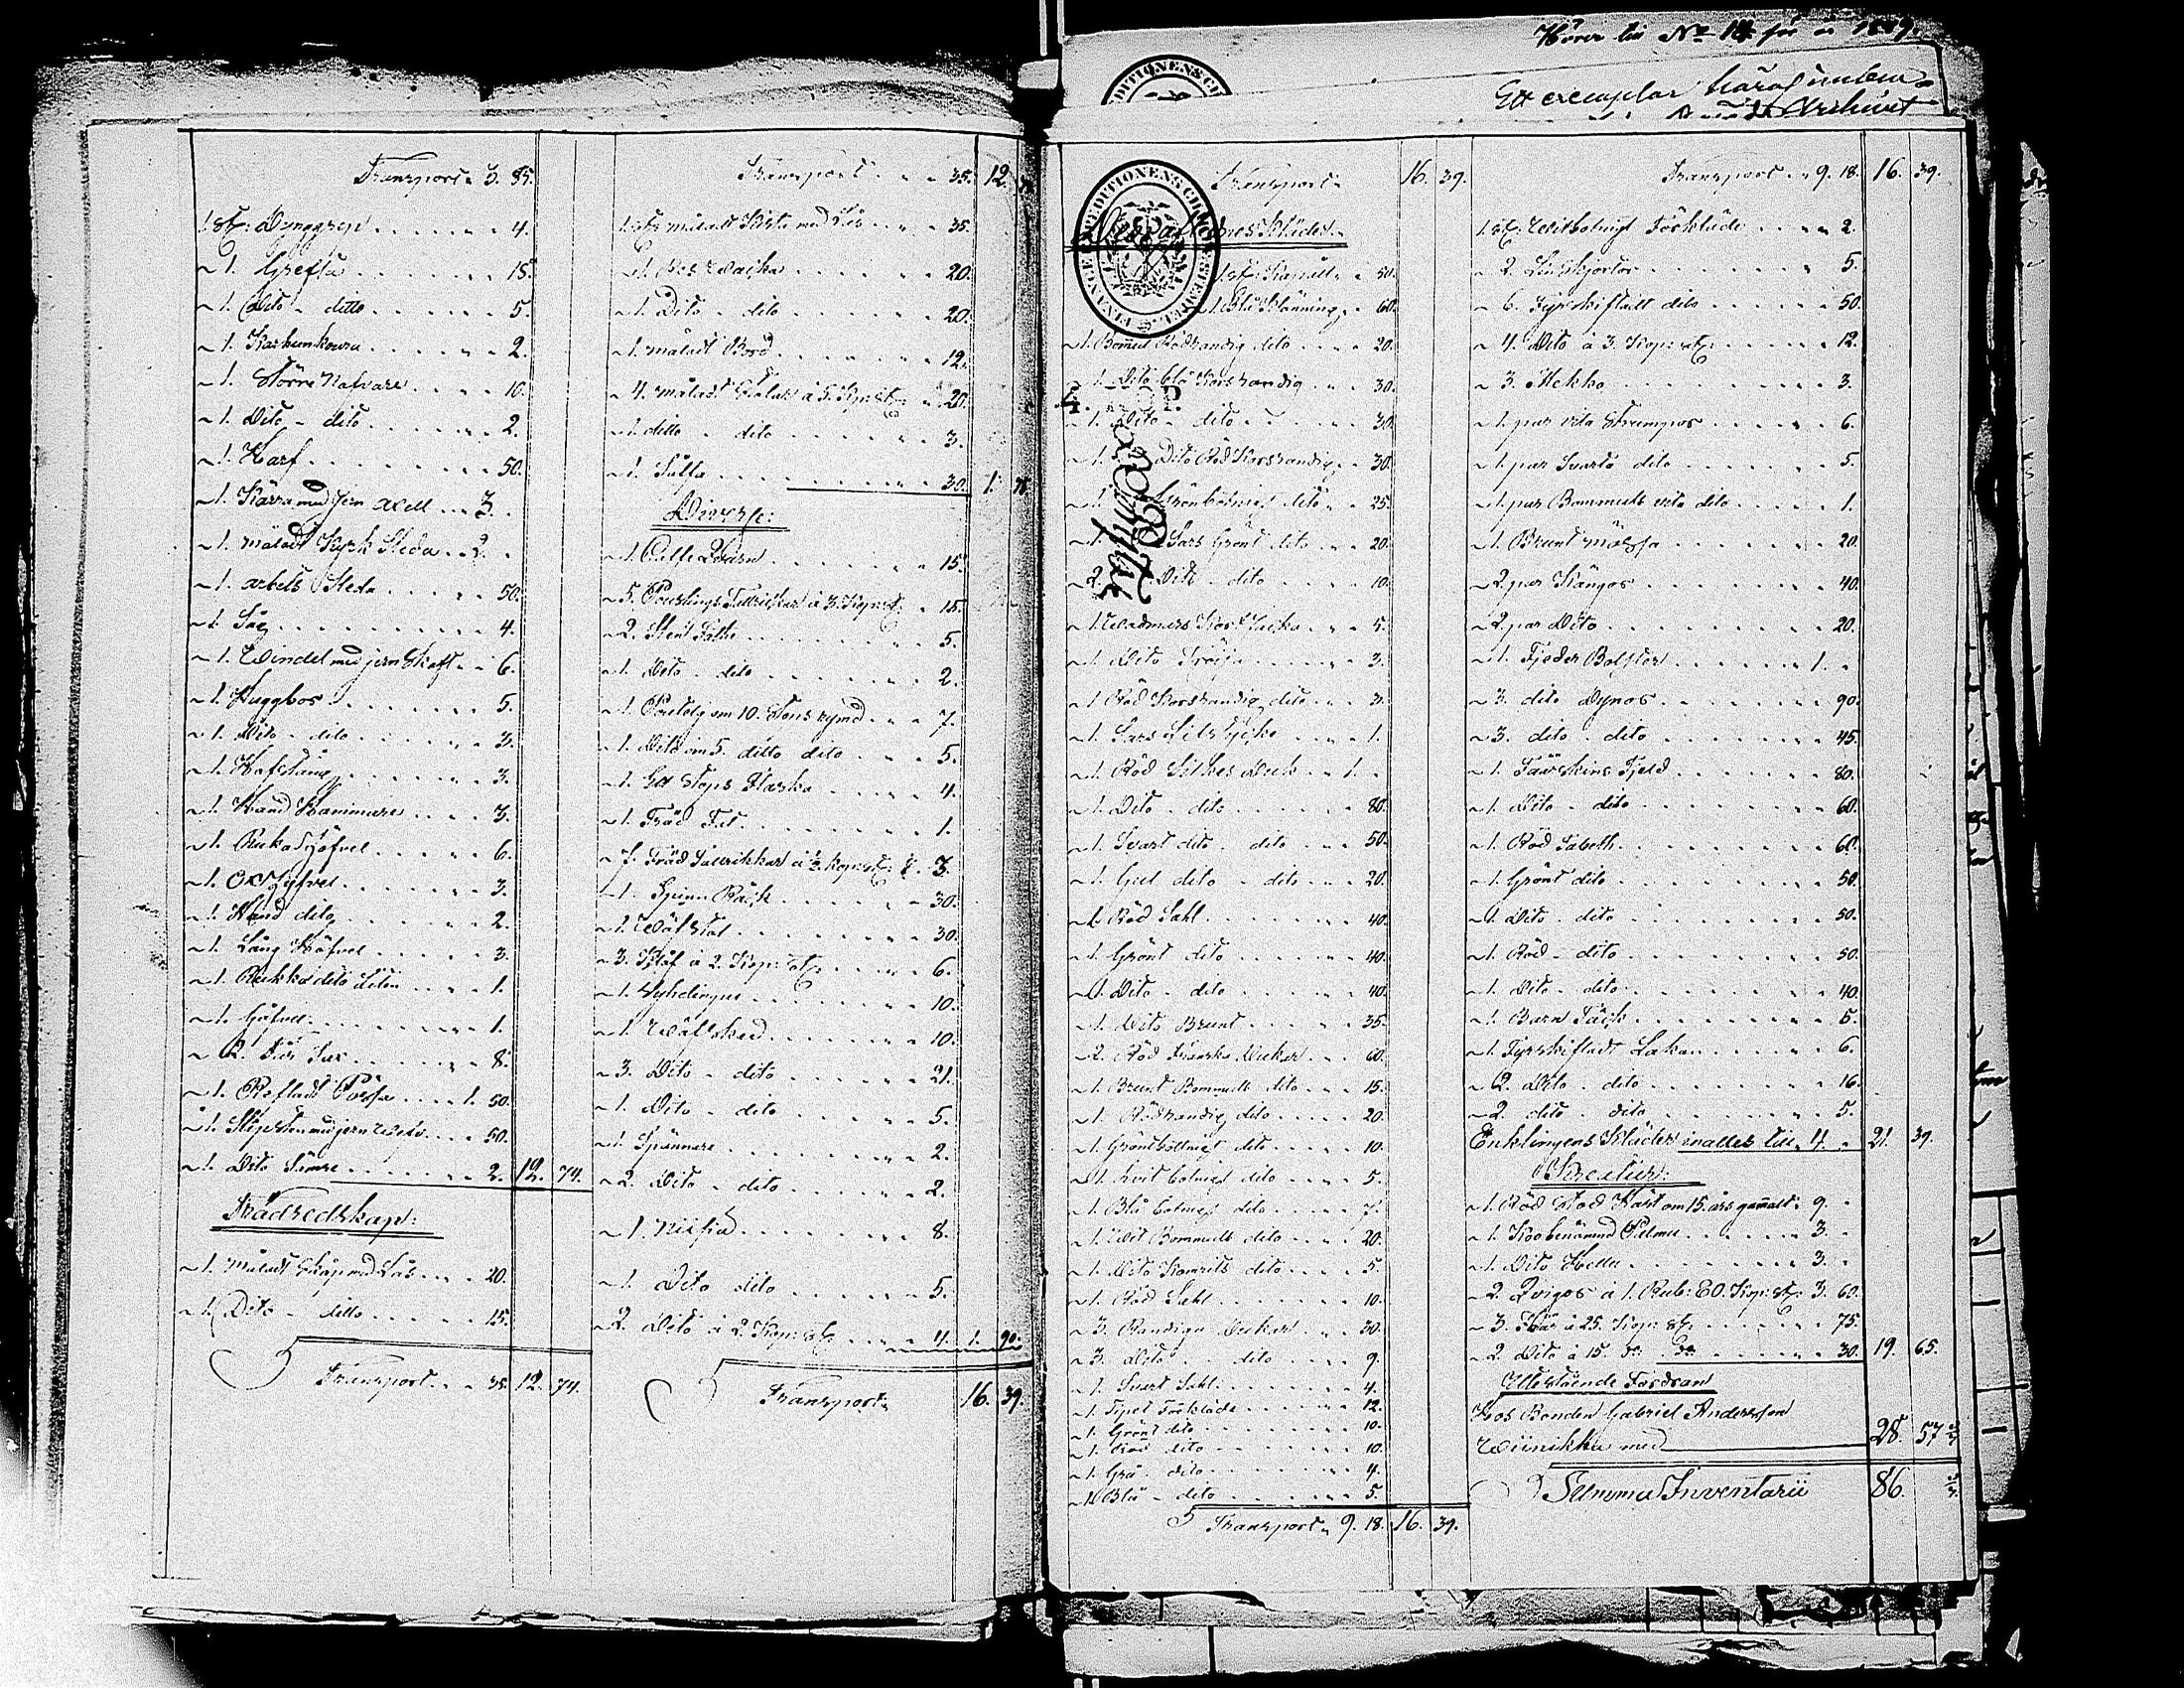 Hörer till No 14 för år 1859.
Ett exemplar häraf
Transport 3. 85.
1. st: Dynggrep 4.
1. Grefta 15.
1. Dito ditto 5.
1. 2.
1. Större Nafvare 10.
1. Dito dito 2.
1. Harf 50.
1. Kärra med jern axell 3.
1. målad Kyrk Sleda 2.
1. arbets Sleda 50.
1. Såg 4.
1. Windel med jern Skaft 6.
1. Huggbor 5.
1. Dito dito 3.
1. Hofstång 3.
1. Hand Hammare 3.
1. 6.
1. 3.
1. Hand dito 2.
1. Lång Höfvel 3.
1. dito liten 1.
1. 1.
2. Får Sax 8.
1. Reflad Bössa 1. 50.
1. Slipsten med jern 50.
1. Dito Sämre 2. 12. 74.
Trädredskap:
1. Måladt Skåp med Lås 20.
1. Dito ditto 15.
Transport 35. 12. 74.
Transport 35. 12. 74.
1. st: målad Kista med Lås 35.
1. 20.
1. Dito dito 20.
1. måladt Bord 12.
4. målad Stolar à 5. Kop: st: 20.
1. ditto dito 3.
1. Soffa 30. 1. 75.
Diverse:
1. Caffe Qvarn 15.
5. Porslings Tallrickar à 3. Kop: st: 15.
2. Stent Fathe 5.
1. Dito dito 2.
1. om 10. Stops rymd 7.
1. Dito om 5. ditto dito 5.
1. Ett Stops Flaska 4.
1. Träd Fat 1.
7. Träd Tallrikkar à 1/2 Kop: st: 3.
1. Spinn Råck 30.
1. Wäfstol 30.
3. à 2. Kop: st: 6.
1. 10.
1. Wäfsked 10.
3. Dito dito 21.
1. Dito dito 5.
1. Spännare 2.
2. Dito dito 2.
1. 8.
1. Dito dito 5.
2. Dito à 2. Kop: st: 4. 1. 90.
Transport 16. 39.
Transport 16. 39.
1. st: 50.
1. Blå Klänning 60.
1. Bomul Rödrandig dito 20.
1. Dito blå Korsrandig 30.
1. Dito dito 30.
1. Dito Röd Korsrandig 30.
1. Grönbotnigt dito 25.
1. Sars Grönt dito 20.
2. Dito dito 10.
1. Wadmars Kort 5.
1. Dito Tröija 3.
1. Röd Korsrandig dito 3.
1. Sars Lifstycke 1.
1. Röd Silkes Duk 1.
1. Dito dito 80.
1. Svart dito dito 50.
1. Gul dito dito 20.
1. Röd Sahl 40.
1. Grönt dito 40.
1. Dito dito 40.
1. Dito Brunt 35.
2. Röd Franska Dukar 60.
1. Brunt Bommuls dito 15.
1. Rödrandig dito 20.
1. Gröntbottnigt dito 10.
1. hvit botnigt dito 5.
1. Blå botnigt dito 7.
1. Wit Bommuls dito 20.
1. Dito Kamrits dito 5.
1. Röd Sahl 10.
3. Randiga Duckar 30.
3. Dito dito 9.
1. Svart Sahl 4.
1. Förkläde 12.
1. Grönt dito 10.
1. Röd dito 10.
1. Grå dito 4.
1. Blå dito 5.
Transport 9. 18. 16. 39.
Transport 9. 18. 16. 39.
1. st: Witbotnigt Förkläde 2.
2. Linskjortor 5.
6. Fyrskiftadt dito 50.
4. Dito à 3. Kop: st: 12.
3. Hekko 3.
1. par vita Strumpor 6.
1. par Svarta dito 5.
1. par Bommuls vita dito 1.
1. Brunt mössa 20.
2. par Kängor 40.
2. par Dito 20.
1. Fjeder Bolster 1.
3. dito Dynor 90.
3. dito dito 45.
1. Fårskins Fjeld 80.
1. Dito dito 60.
1. Röd 60.
1. Grönt dito 50.
1. Dito dito 50.
1. Röd dito 50.
1. Dito dito 40.
1. Barn Täck 5.
1. Fyrskiftadt Lakan 6.
2. Dito dito 16.
2. dito dito 5.
Enklingens Kläder till 4. 21. 39.
Kreatur:
1. Röd Stod Häst om 15. års gamalt: 9.
1. Ko benämnd 3.
1. Dito 3.
2. Qvigor à 1. Rub: 80. Kop: st: 3. 60.
3. Får à 25. Kop: st: 75.
2. Dito à 15. do do 30. 19. 65.
Utestående Fordran
Hos Bonden Gabriel Andersson
Wiinikka med 28. 57
Summa Inventarii 86.